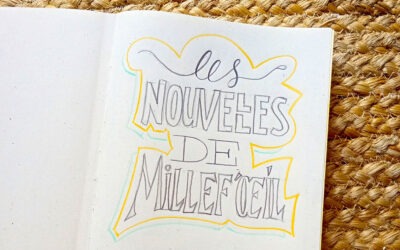 les
NOUVELLES
DE
MILLEF'ŒIL